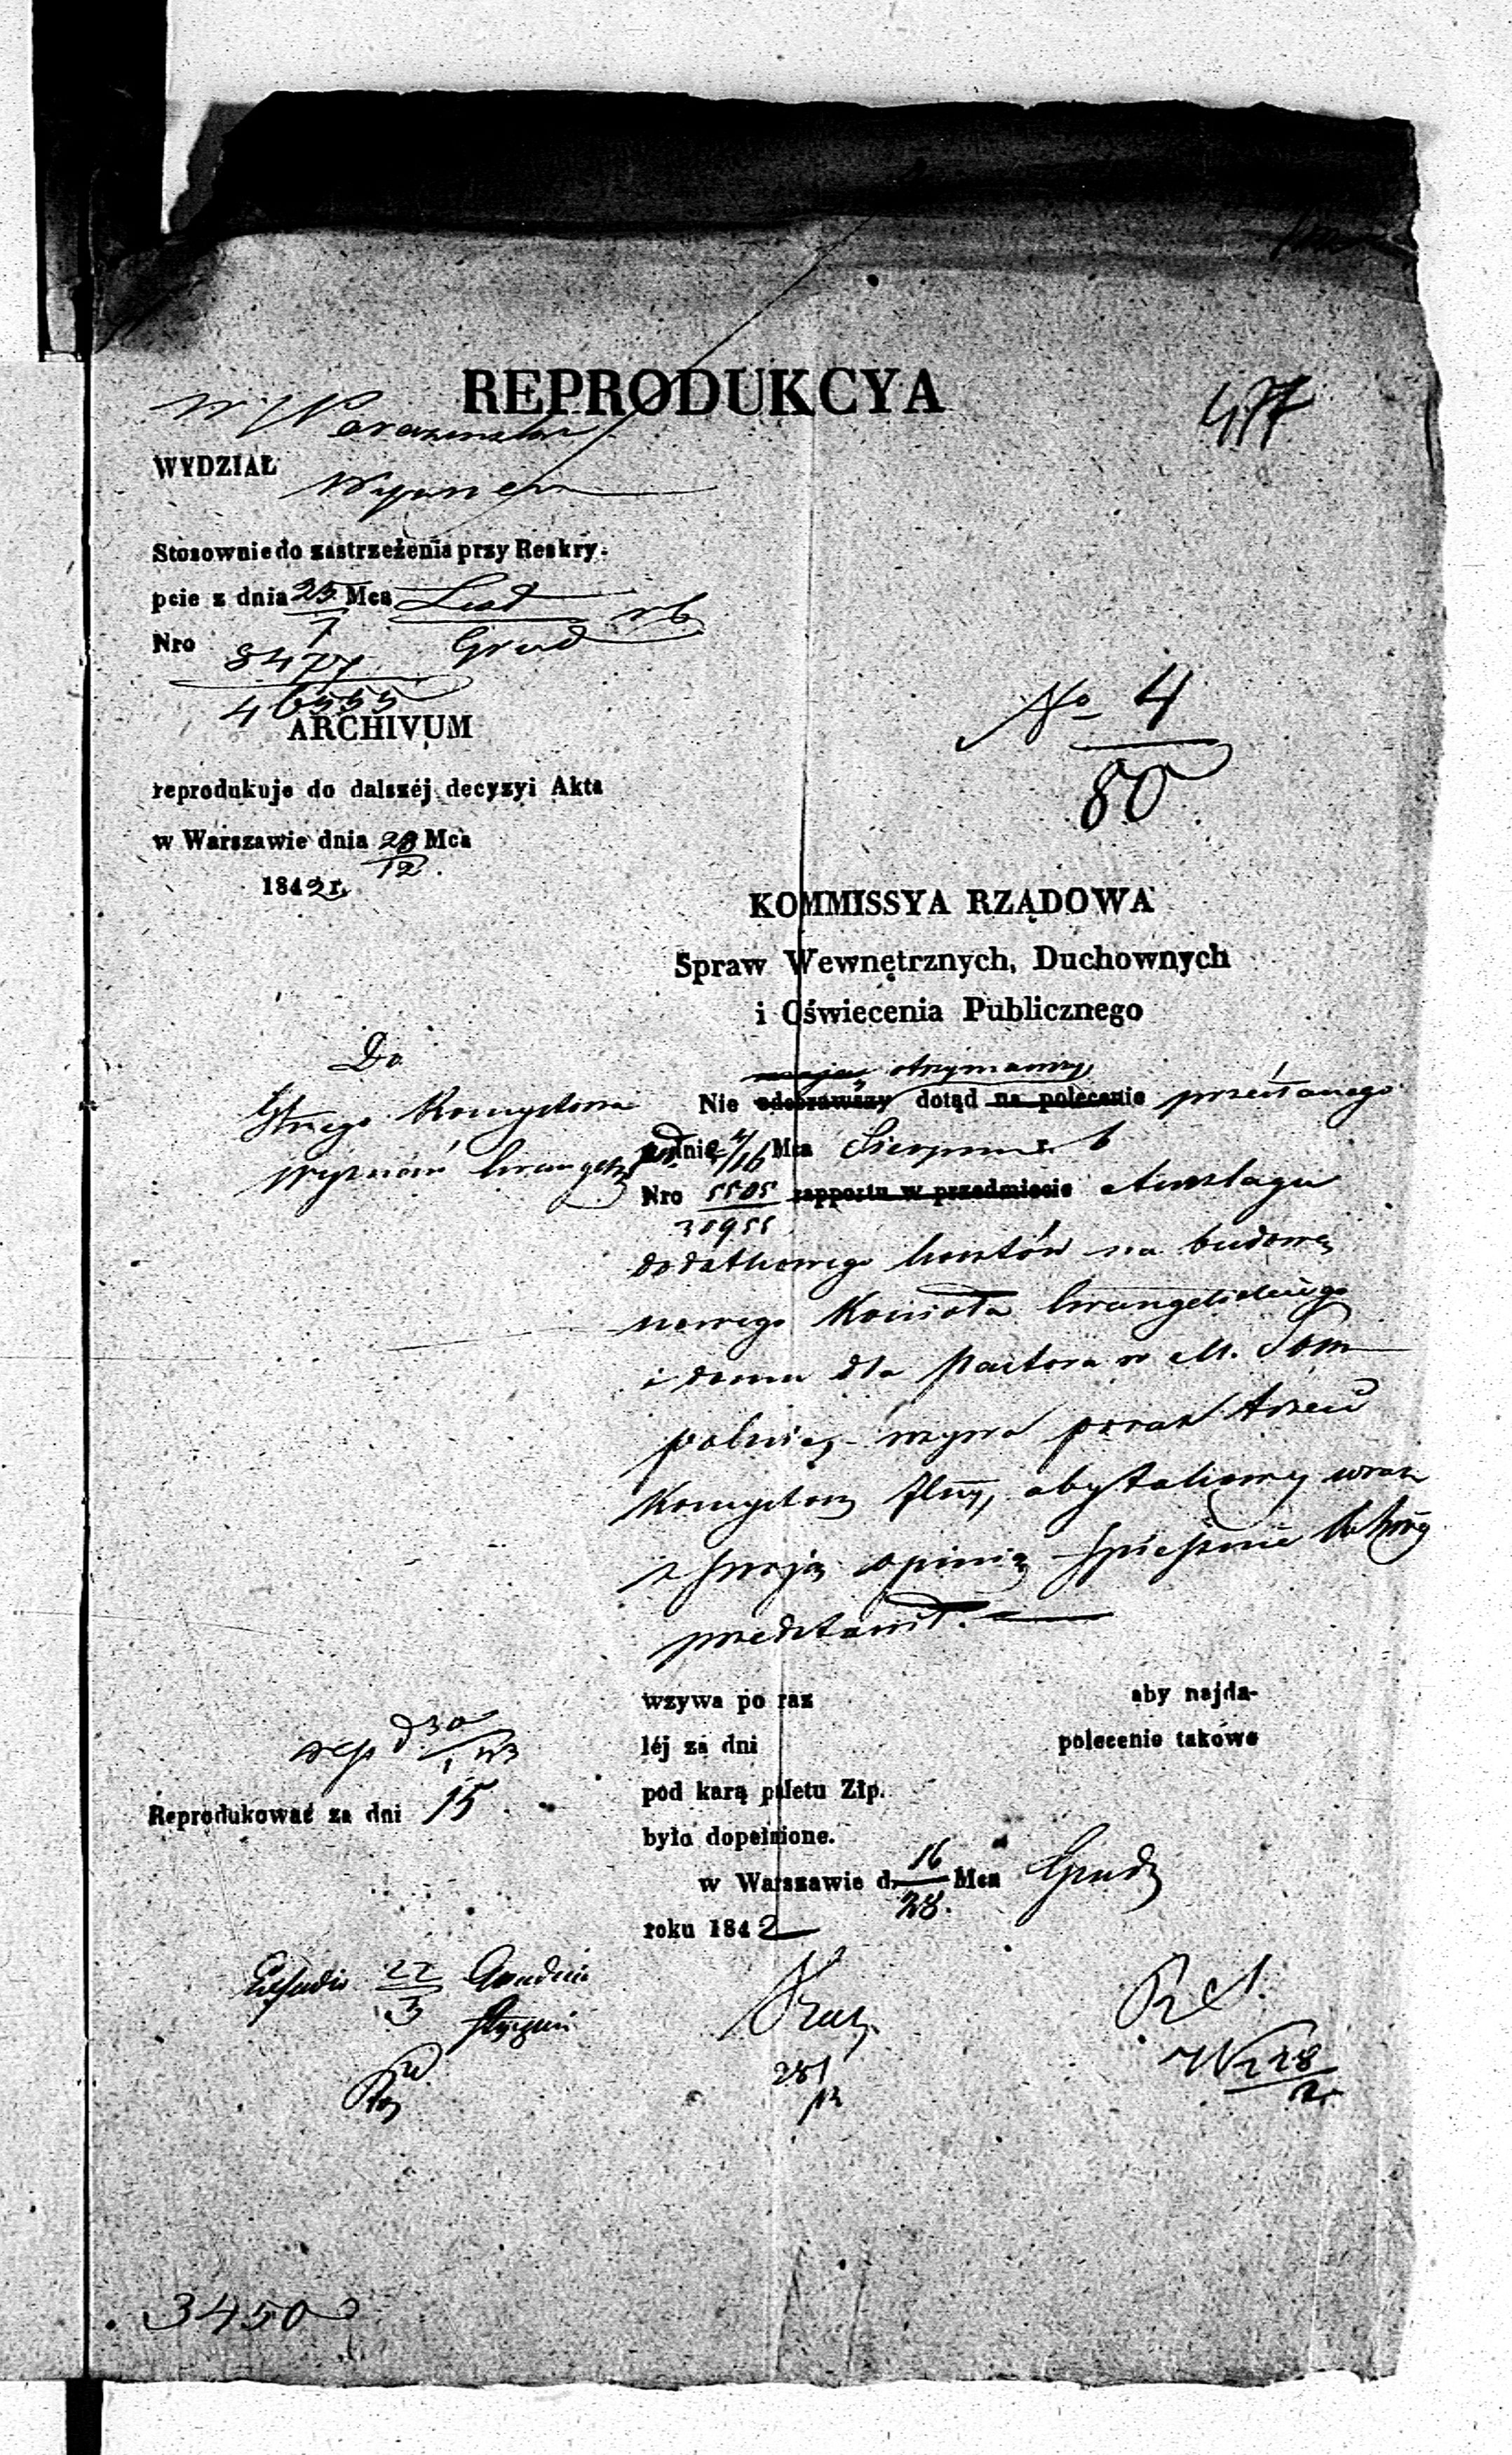 REPRODUKCYA
477
WYDZIAŁ
Stosownie do zastrzeżenia przy Reskry-
pcie z dnia 25 Mca List
7 Grud rb
Nro 8477
46555
ARCHIVUM
reprodukuje do dalszéj decyzyi Akta
w Warszawie dnia 28 Mca
12
1842 r.
No 4
80
KOMMISSYA RZĄDOWA
Spraw Wewnętrznych, Duchownych
i Oświecenia Publicznego
Do
Konsystorza
Wyznań Ewangel
otrzymawszy
Nie odebrawszy dotąd na polecenie przesłanego
dnia 4/16 Mca Sierpnia r. b
Nro 5505 rapportu w przedmiocie Anszlagu
30955
dodatkowego kosztów na budowę
nowego Kościoła Ewangelickiego
i domu dla Pastora w M. Som
polnie, wzywa poraz trzeci
Konsystorz aby takowy wraz
z swoją opinią spiesznie
przedstawił.
wzywa po raz aby najda-
léj za dni polecenie takowe
pod karą paletu Złp.
było dopełnione.
w Warszawie d. 16 Mca Grudz
28.
roku 1842
rep d 30
1 43
Reprodukować za dni 15
22 Grudnia
3 Stycznia
28/12
3450